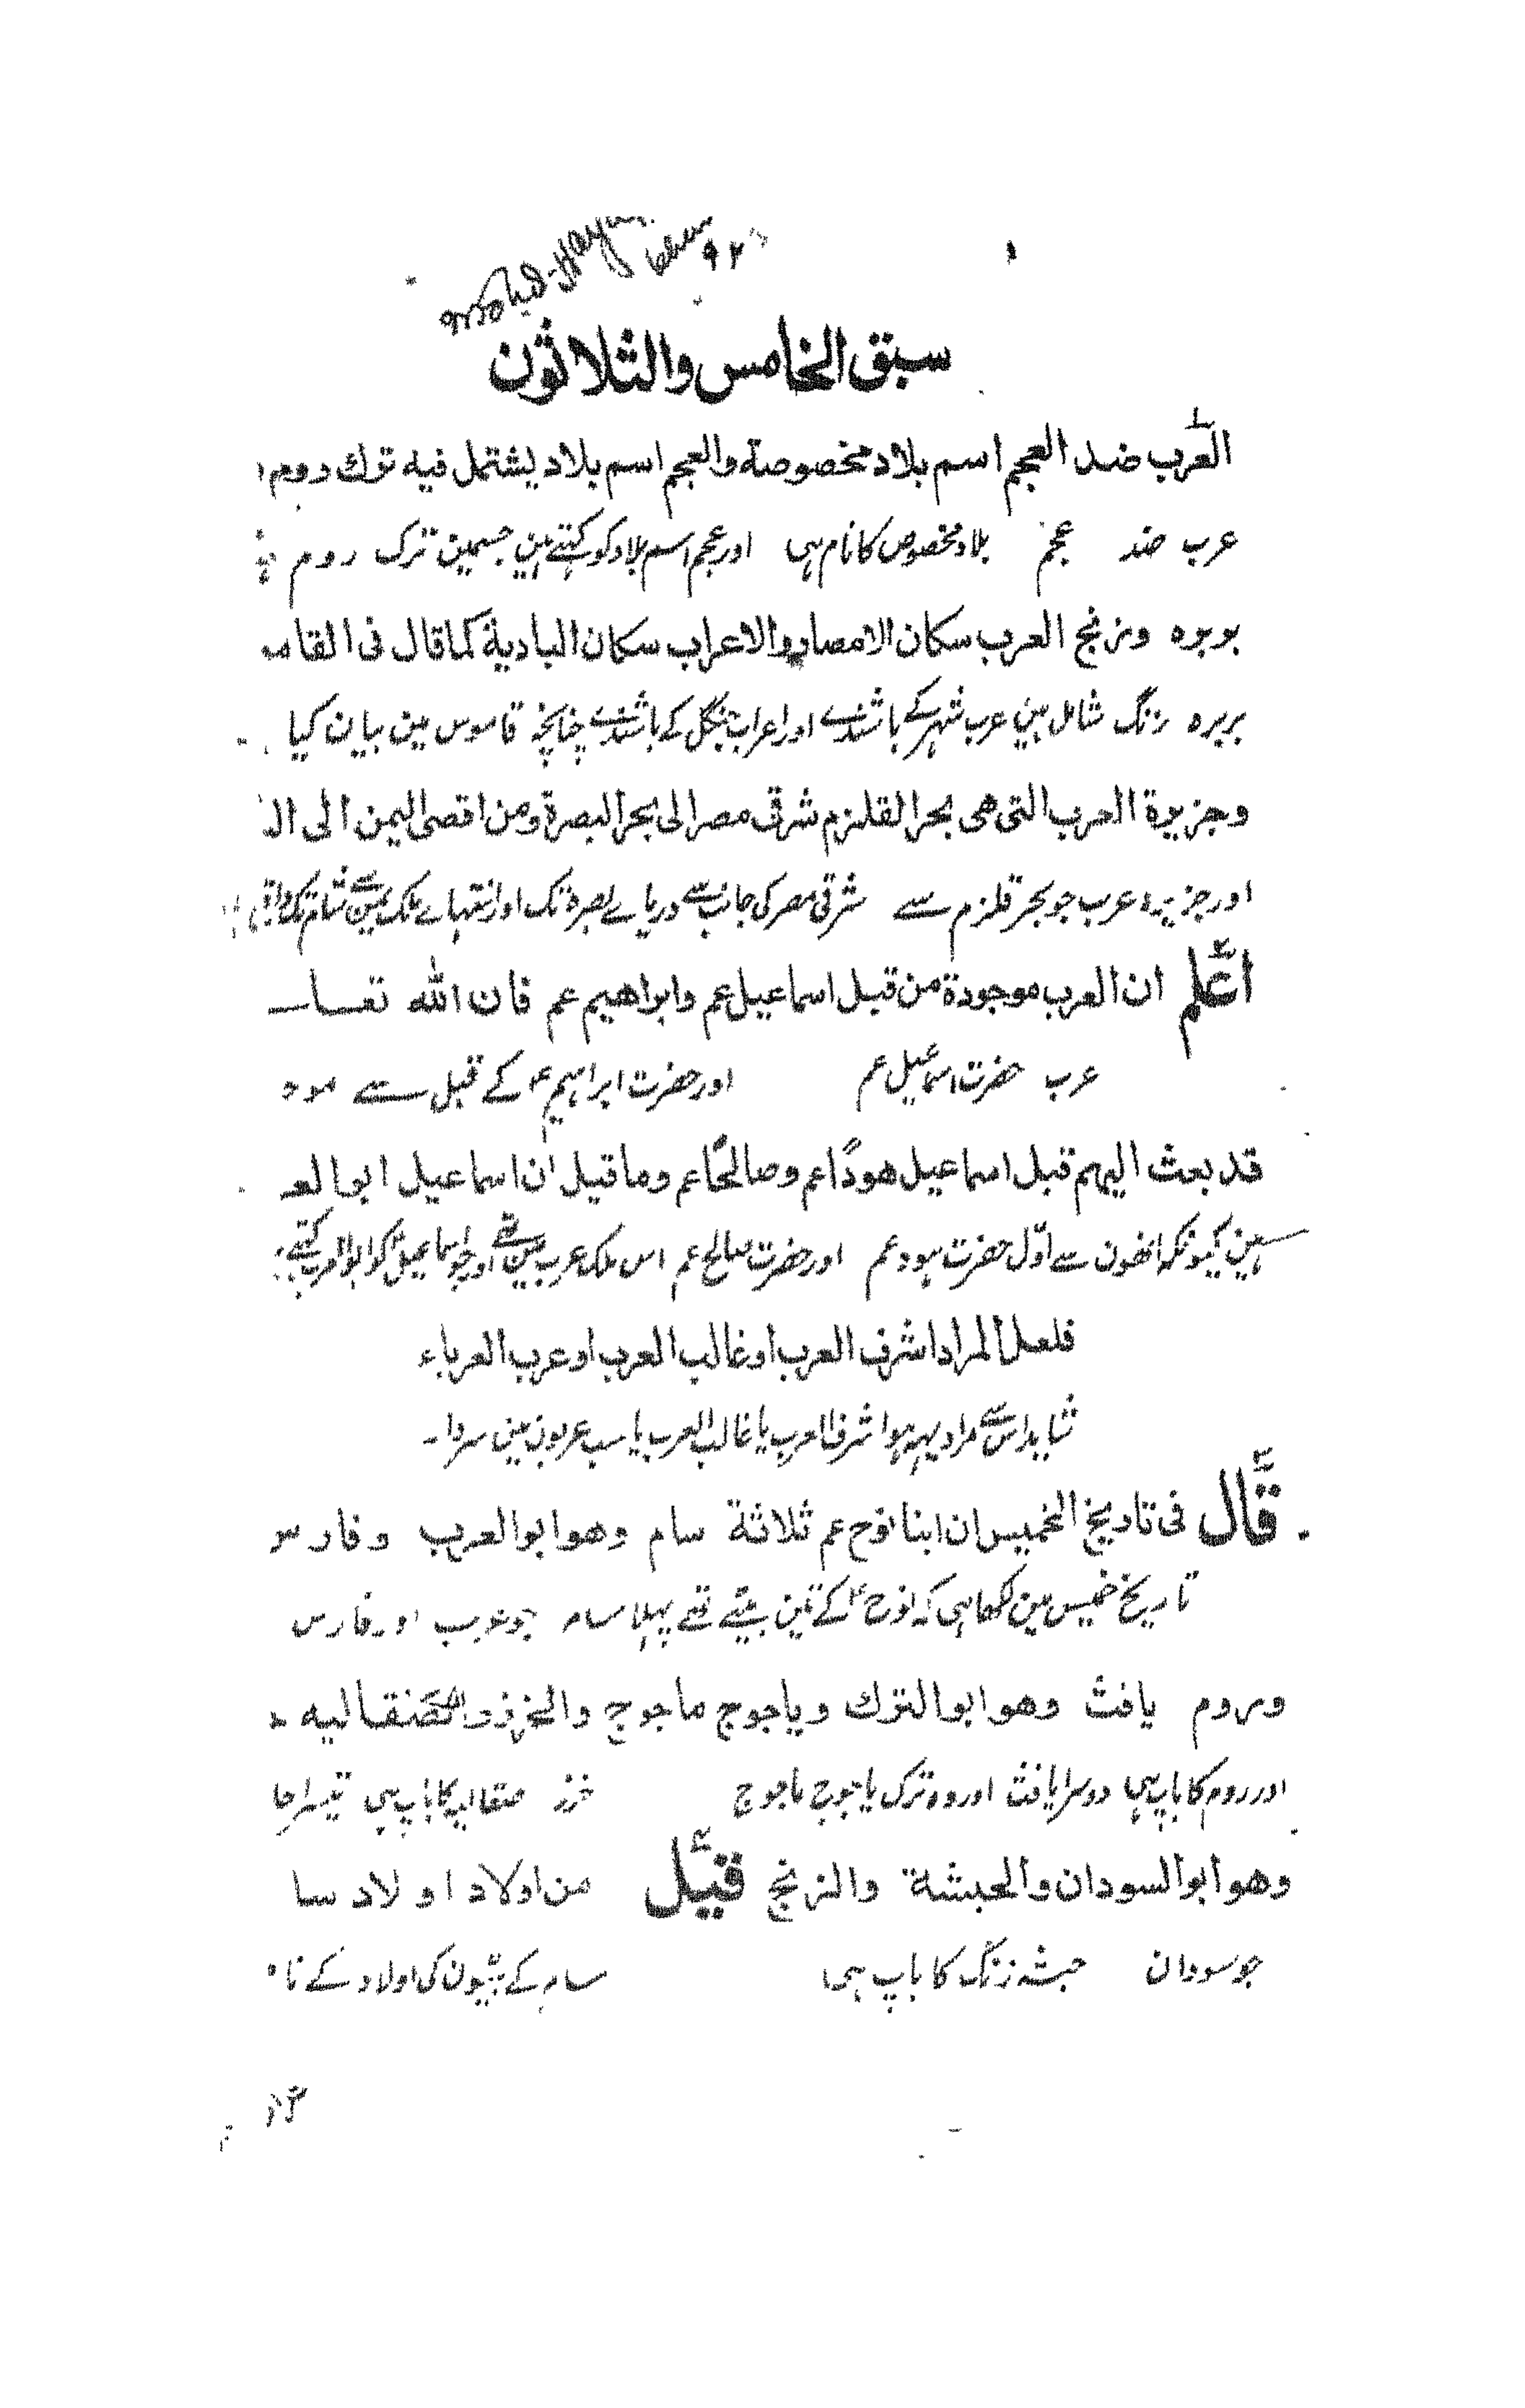 ۹۲
سبق الخامس والثلاثون
العرب ضد العجم اسم بلاد مخصوصة والعجم اسم بلاد يشتمل فيه ترك دوم
عرب ضد عجم بلاد مخصوص کا نام ہی اور عجم اسم بلاد کو کہتے ہین جسمین ترک روم
بوبره وزنج العرب سكان الامصار والاعراب سكان البادية كما قال فی القام
بربرہ زنگ شامل ہین عرب شہر کے باشندے اور اعراب جنگل کے باشندے چنانچہ قاموس مین بیان کیا
وجزيرة العرب التی هی بحر القلزم شرقی مصر الی بحر البصرة ومن اقصی الیمن الی ال
اور جزیرہ عرب جو بحر قلزم سے شرقی مصر کی جانب سے دریاے بصرہ تک اور انتہاے ملک یمن سے شام تک
اعلم ان العرب موجودة من قبل اسماعیل عم وابراهیم عم فان الله تعا
عرب حضرت اسماعیل عم اور حضرت ابراہیم ع کے قبل سے
قد بعث الیهم قبل اسماعیل هودًا عم وصالحًا عم وما قیل ان اسماعیل ابو العـ
ہین کیونکہ انھون سے اوّل حضرت ہود عم اور حضرت صالح عم اس ملک عرب مین تھے اور جو اسماعیل کو ابو العرب کہتے
فلعل المراد اشرف العرب او غالب العرب او عرب العرباء
شاید اس سے مراد یہہ ہو اشرف العرب یا غالب العرب یا سب عربون مین سردا۔
قال فی تاریخ الخمیس ان ابنا نوح عم ثلاثة سام وهو ابو العرب وفارس
تاریخ خمیس مین لکھا ہی کہ نوح ع کے تین بیٹے تھے پہلا سام جو عرب اور فارس
وروم یافث وهو ابو الترك ویاجوج ماجوج والخزز والصنقالیه
اور روم کا باپ ہی دوسرا یافث اور وہ ترک یاجوج ماجوج خزز صقالیہ کا باپ ہی تیسرا حا
وهو ابو السودان والحبشة والزنج قیل من اولاد اولاد سا
جو سودان حبشہ زنگ کا باپ ہی سام کے بیٹیون کی اولاد کے نا